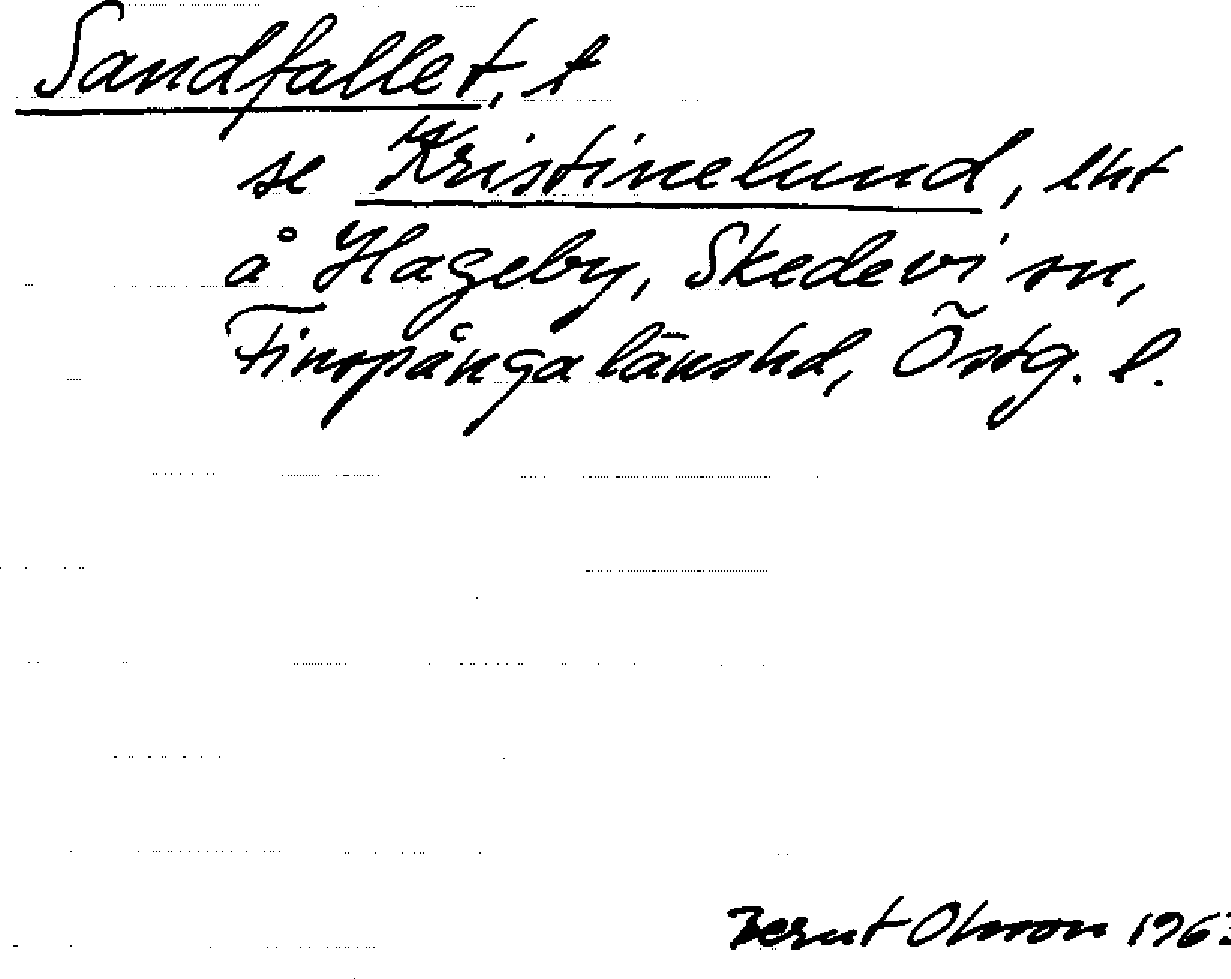 Sandfallet, t
se Kristinelund, lht
å Hageby, Skedevi sn,
Finspånga länshd, Östg. l.
Bernt Olsson 1963